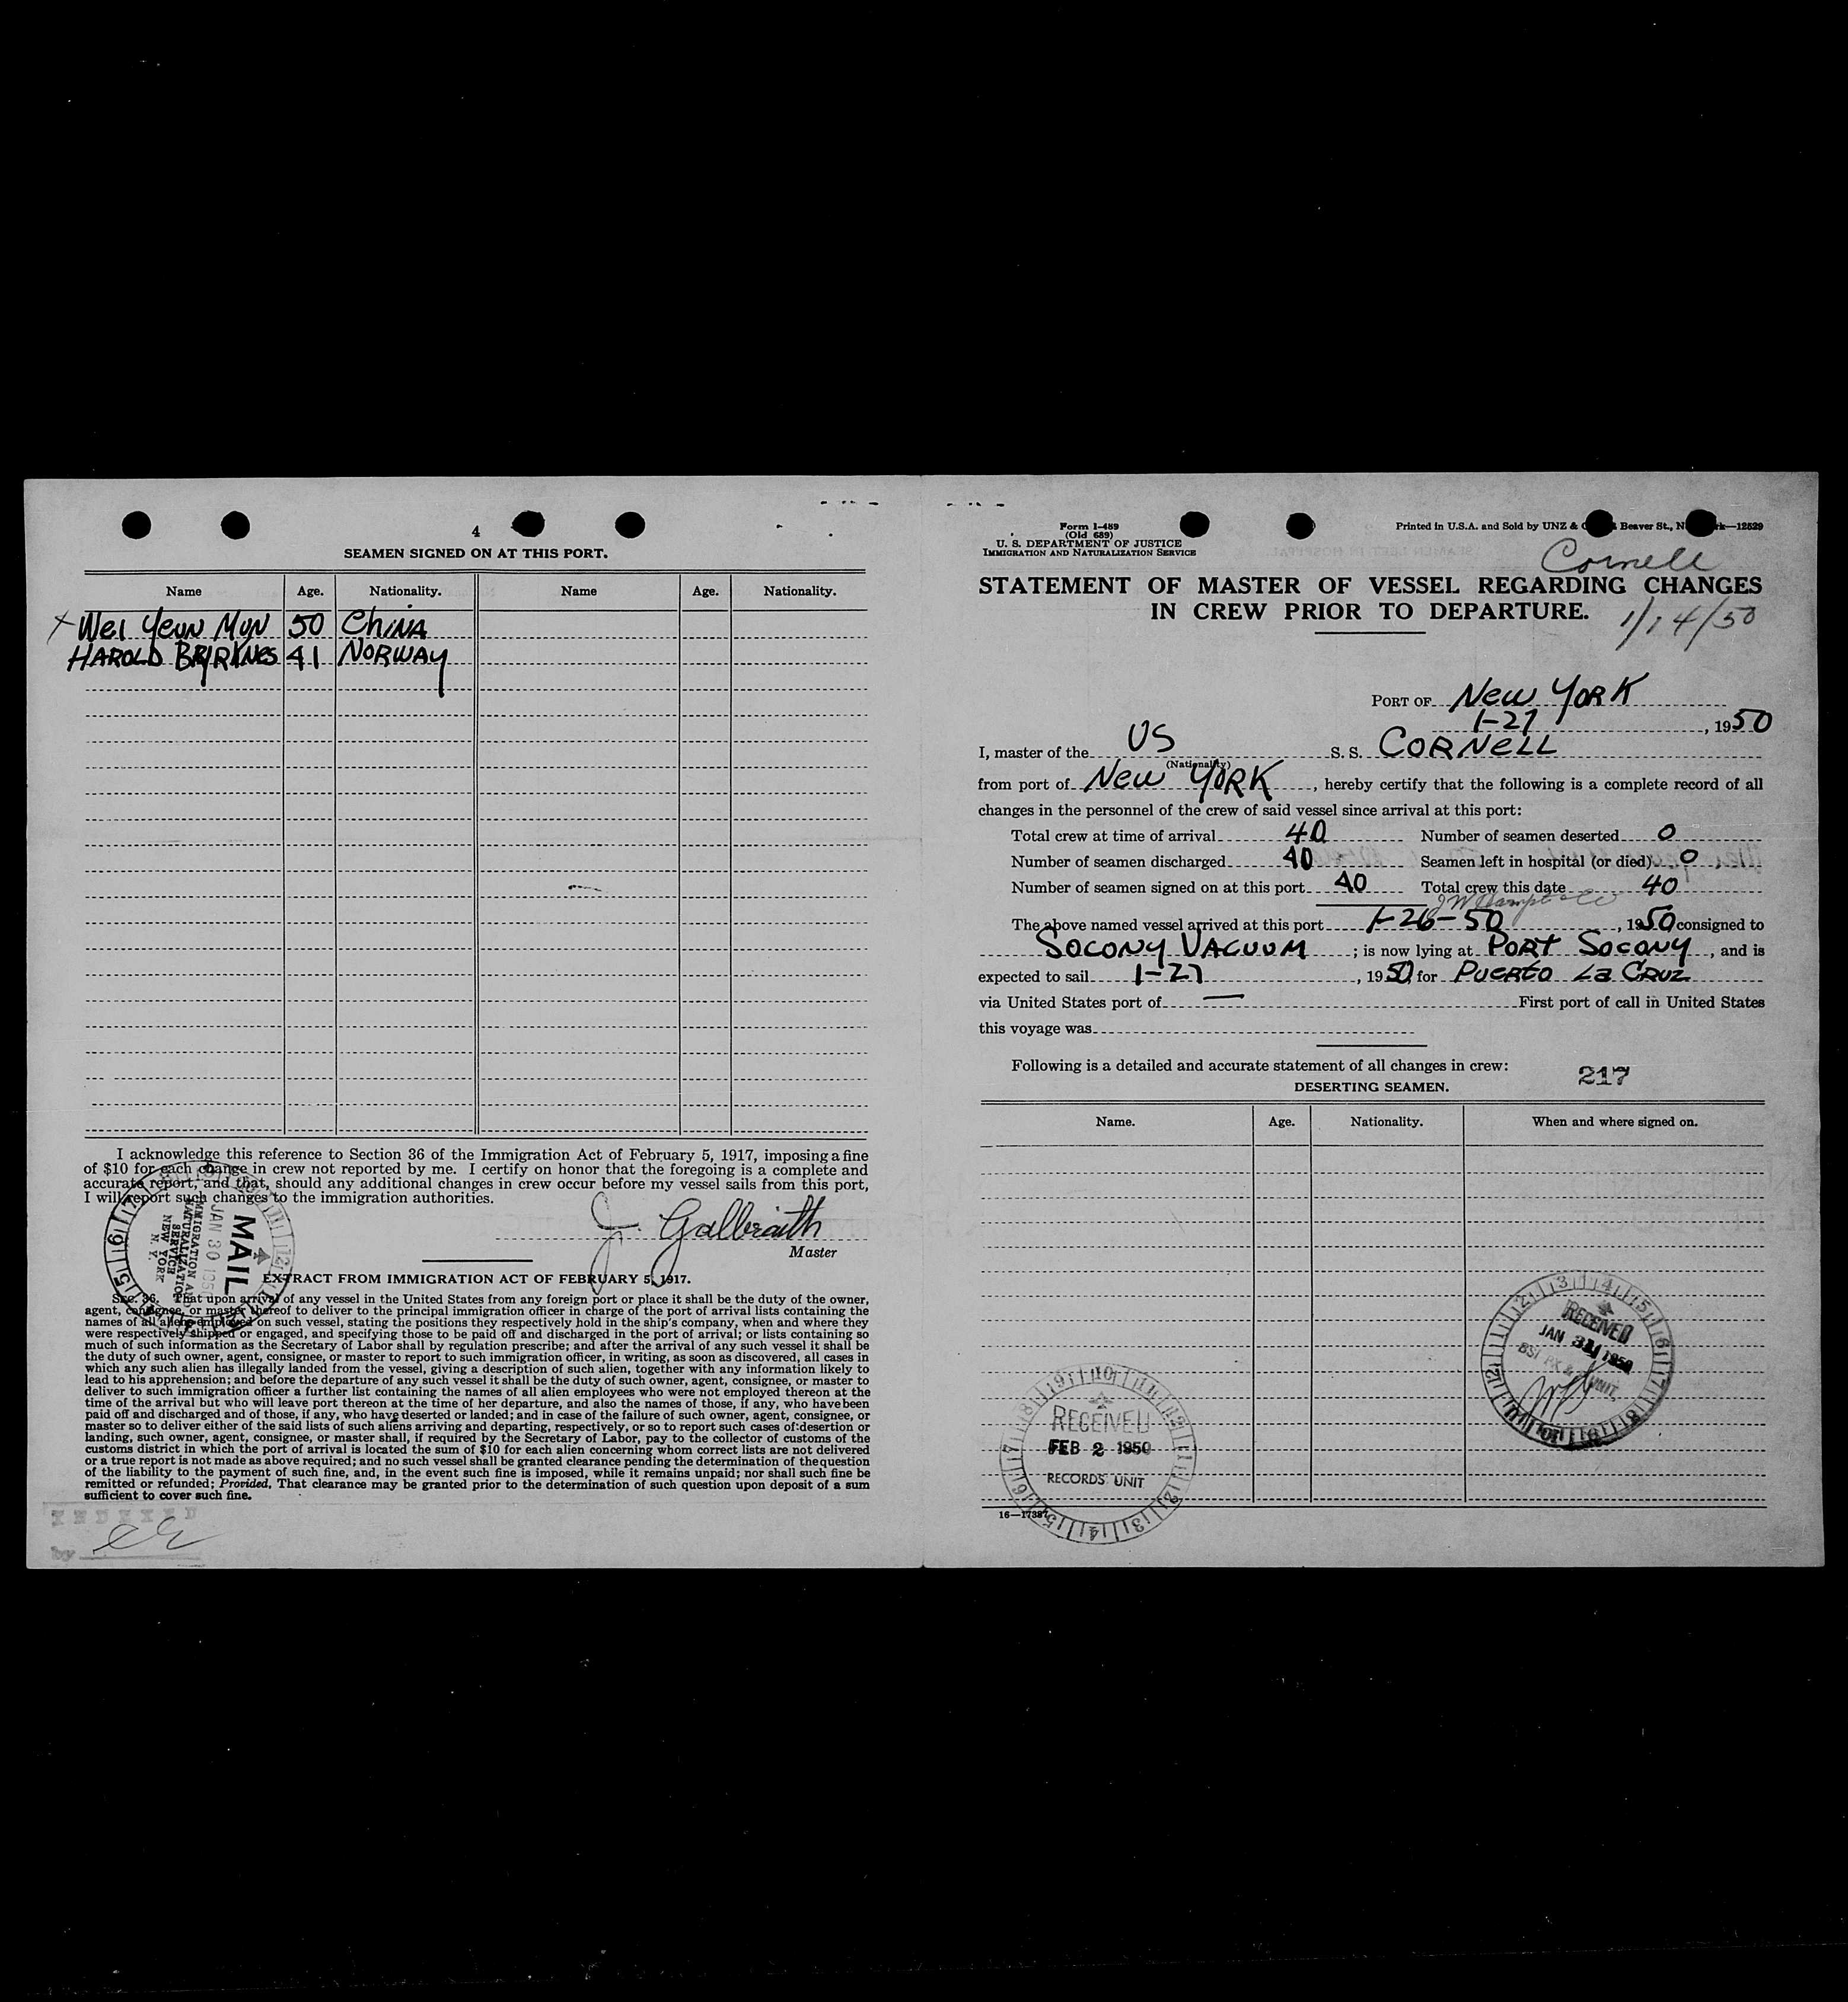 4
SEAMEN SIGNED ON AT THIS PORT.
Name Age. Nationality. Name Age. Nationality.
x Wei Yeun Mun 50 China
Harold 41 Norway
I acknowledge this reference to Section 36 of the Immigration Act of February 5, 1917, imposing a fine
of $10 for each change in crew not reported by me. I certify on honor that the foregoing is a complete and
accurate report, and that, should any additional changes in crew occur before my vessel sails from this port,
I will report such changes to the immigration authorities.
J. Galbraith
Master
MAIL
JAN 30
IMMIGRATION AND
NATURALIZATION
SERVICE
NEW YORK
N. Y.
EXTRACT FROM IMMIGRATION ACT OF FEBRUARY 5, 1917.
Sec. 36. That upon arrival of any vessel in the United States from any foreign port or place it shall be the duty of the owner,
agent, consignee, or master thereof to deliver to the principal immigration officer in charge of the port of arrival lists containing the
names of all aliens employed on such vessel, stating the positions they respectively hold in the ship's company, when and where they
were respectively shipped or engaged, and specifying those to be paid off and discharged in the port of arrival; or lists containing so
much of such information as the Secretary of Labor shall by regulation prescribe; and after the arrival of any such vessel it shall be
the duty of such owner, agent, consignee, or master to report to such immigration officer, in writing, as soon as discovered, all cases in
which any such alien has illegally landed from the vessel, giving a description of such alien, together with any information likely to
lead to his apprehension; and before the departure of any such vessel it shall be the duty of such owner, agent, consignee, or master to
deliver to such immigration officer a further list containing the names of all alien employees who were not employed thereon at the
time of the arrival but who will leave port thereon at the time of her departure, and also the names of those, if any, who have been
paid off and discharged and of those, if any, who have deserted or landed; and in case of the failure of such owner, agent, consignee, or
master so to deliver either of the said lists of such aliens arriving and departing, respectively, or so to report such cases of desertion or
landing, such owner, agent, consignee, or master shall, if required by the Secretary of Labor, pay to the collector of customs of the
customs district in which the port of arrival is located the sum of $10 for each alien concerning whom correct lists are not delivered
or a true report is not made as above required; and no such vessel shall be granted clearance pending the determination of the question
of the liability to the payment of such fine, and, in the event such fine is imposed, while it remains unpaid; nor shall such fine be
remitted or refunded; Provided, That clearance may be granted prior to the determination of such question upon deposit of a sum
sufficient to cover such fine.
INDEXED
by
Form I-489
(Old 689)
U. S. DEPARTMENT OF JUSTICE
IMMIGRATION AND NATURALIZATION SERVICE
Printed in U.S.A. and Sold by UNZ & Beaver St., 12529
Cornell
STATEMENT OF MASTER OF VESSEL REGARDING CHANGES
IN CREW PRIOR TO DEPARTURE.
1/14/50
PORT OF New York
1-27, 1950
I, master of the US S. S. Cornell
(Nationality)
from port of New York, hereby certify that the following is a complete record of all
changes in the personnel of the crew of said vessel since arrival at this port:
Total crew at time of arrival 40 Number of seamen deserted 0
Number of seamen discharged 40 Seamen left in hospital (or died) 0
Number of seamen signed on at this port 40 Total crew this date 40
The above named vessel arrived at this port 1-26-50, 1950 consigned to
Socony Vacuum; is now lying at Port Socony, and is
expected to sail 1-27, 1950, for Puerto La Cruz
via United States port of — First port of call in United States
this voyage was
Following is a detailed and accurate statement of all changes in crew:
217
DESERTING SEAMEN.
Name. Age. Nationality. When and where signed on.
RECEIVED
JAN 31 1950
UNIT
RECEIVED
FEB 2 1950
RECORDS UNIT
16—17387